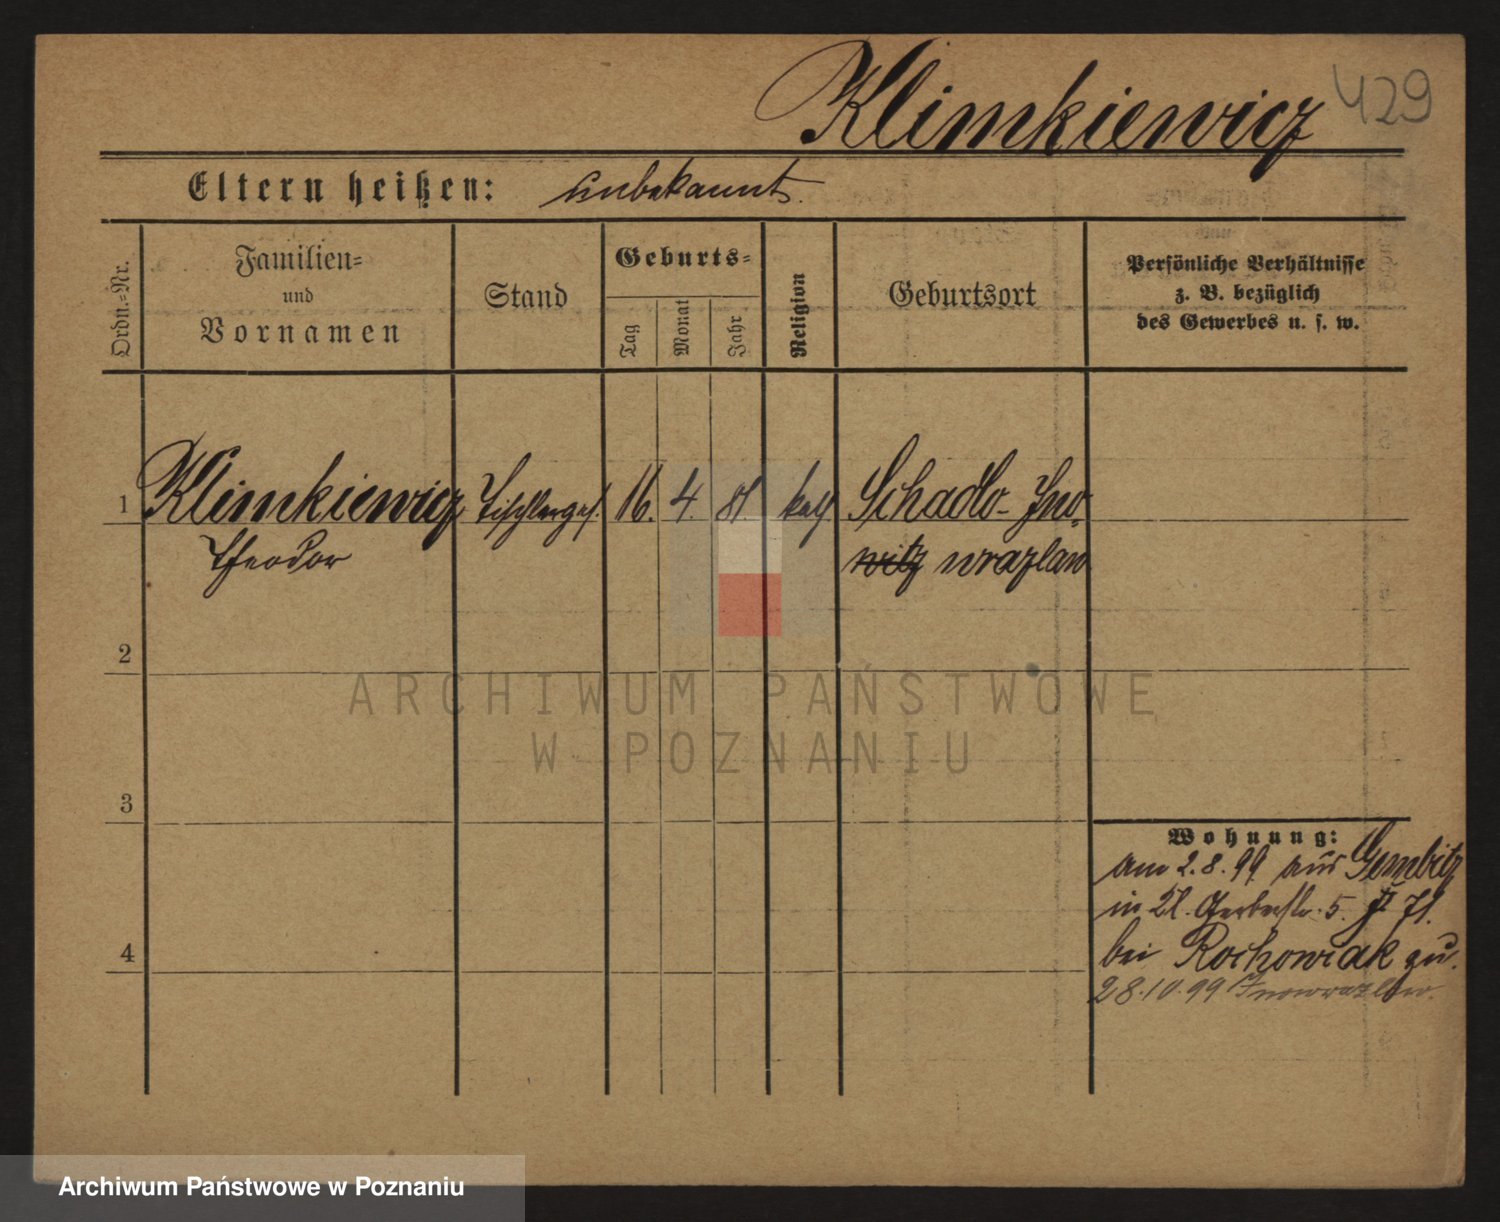 Klimkiewicz
429
Eltern heißen: unbekannt.
Ordn.=Nr.
Familien=
und
Vornamen
Stand
Geburts=
Tag
Monat
Jahr
Religion
Geburtsort
Persönliche Verhältnisse
z. B. bezüglich
des Gewerbes u. s. w.
1 Klimkiewicz Tischlerges. 16. 4. 81 kath Schadlo- Ino-
Theodor witz wrazlaw
2
3
4
Wohnung:
am 2.8.99 aus Gembitz
in Gerberstr. 5.
bei Rochowiak zu.
28.10.99 Inowrazlaw.
ARCHIWUM PAŃSTWOWE
W POZNANIU
Archiwum Państwowe w Poznaniu